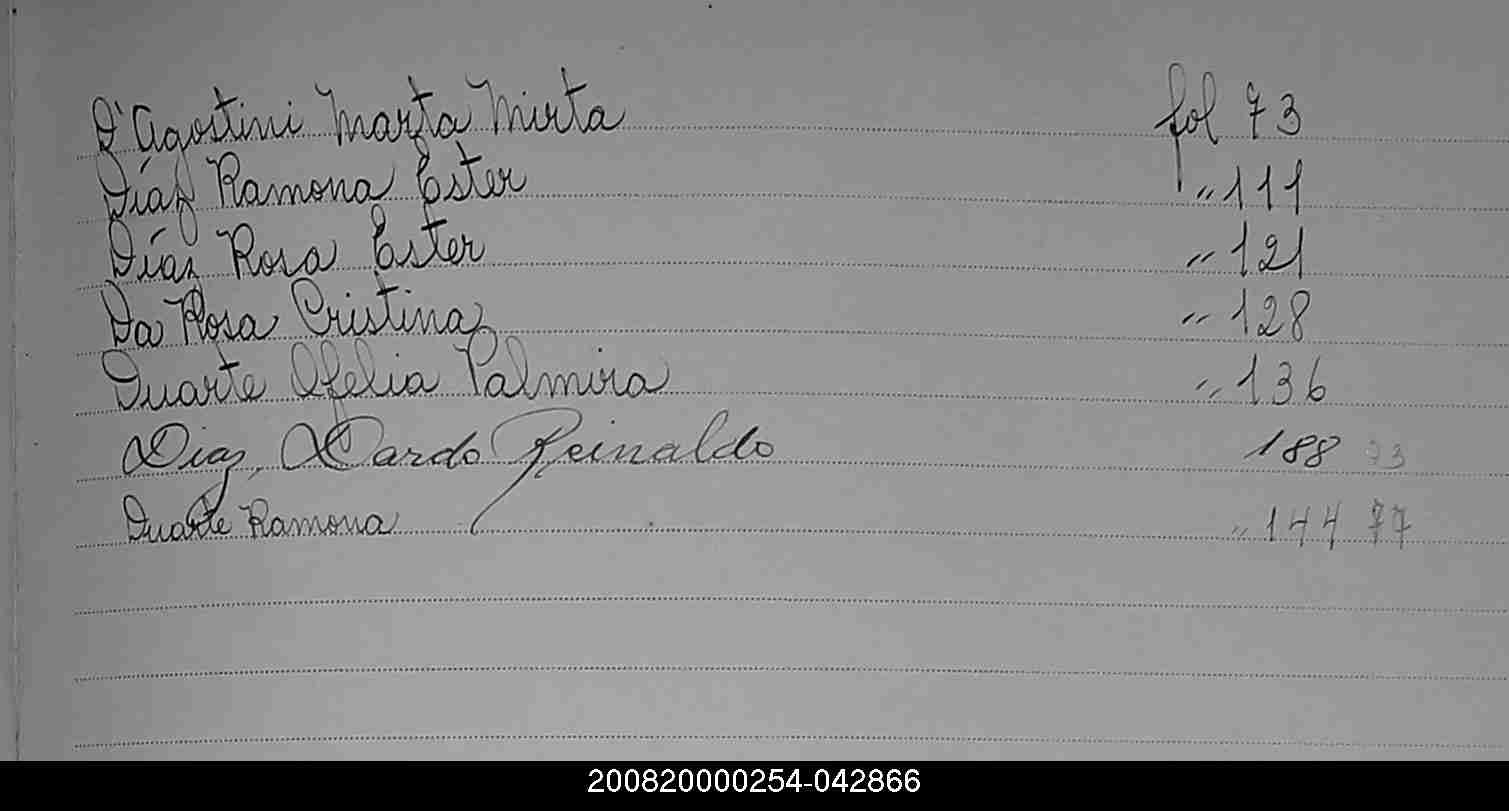 D'Agostini Marta Mirta fol 73
Díaz Ramona Ester " 111
Díaz Rosa Ester " 121
Da Rosa Cristina " 128
Duarte Ofelia Palmira " 136
Diaz, Dardo Reinaldo 188 73
Duarte Ramona " 144 77
200820000254-042866